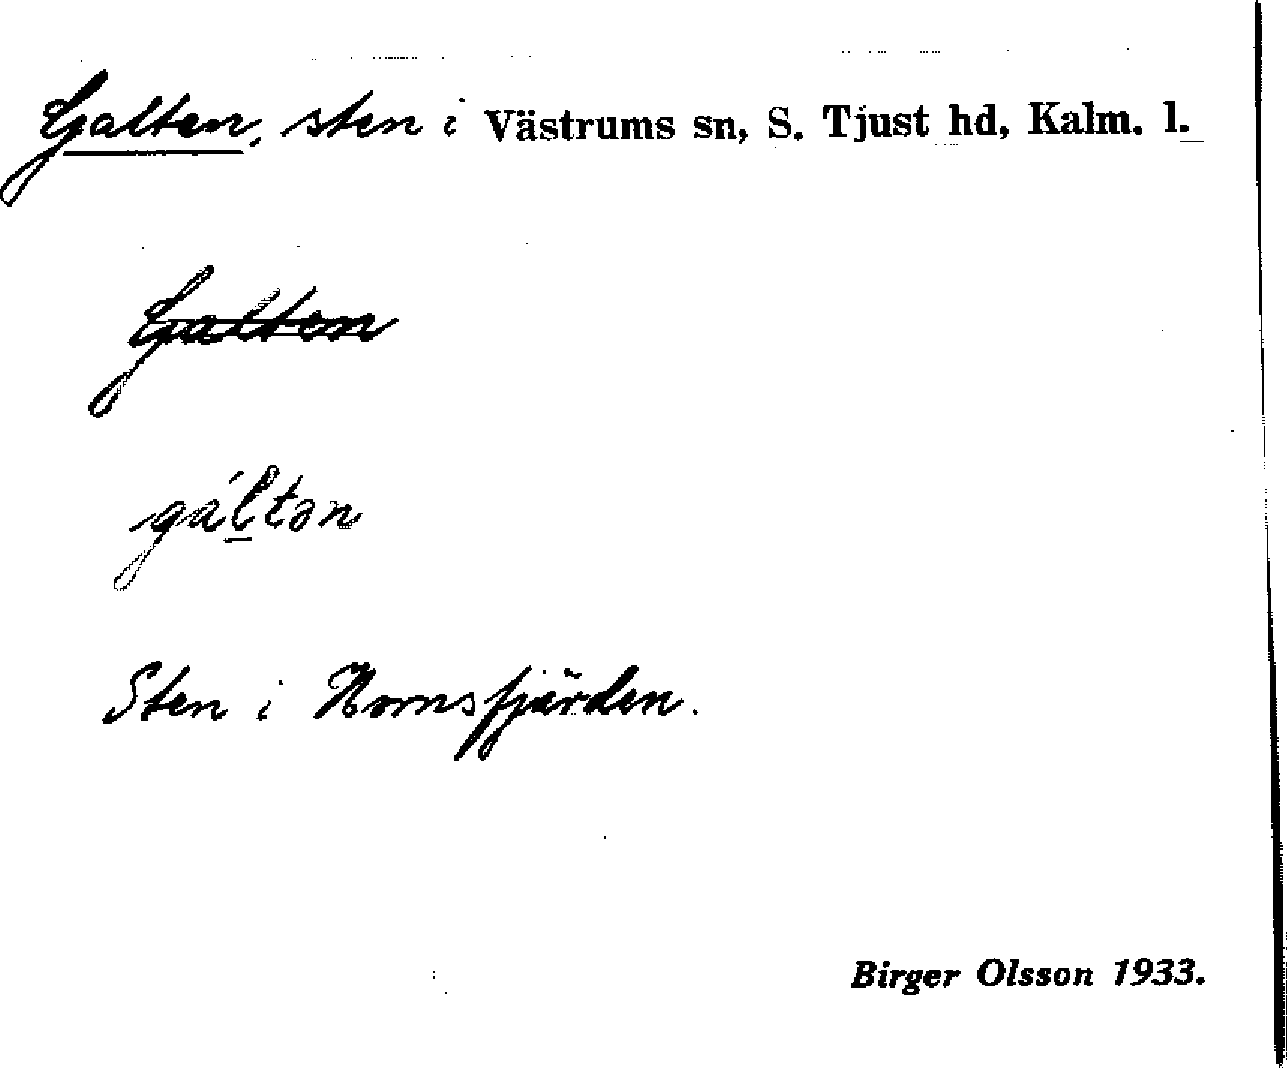 Galten, sten i Västrums sn, S. Tjust hd, Kalm. l.
Galten
gál̲tən
Sten i Hornsfjärden.
Birger Olsson 1933.